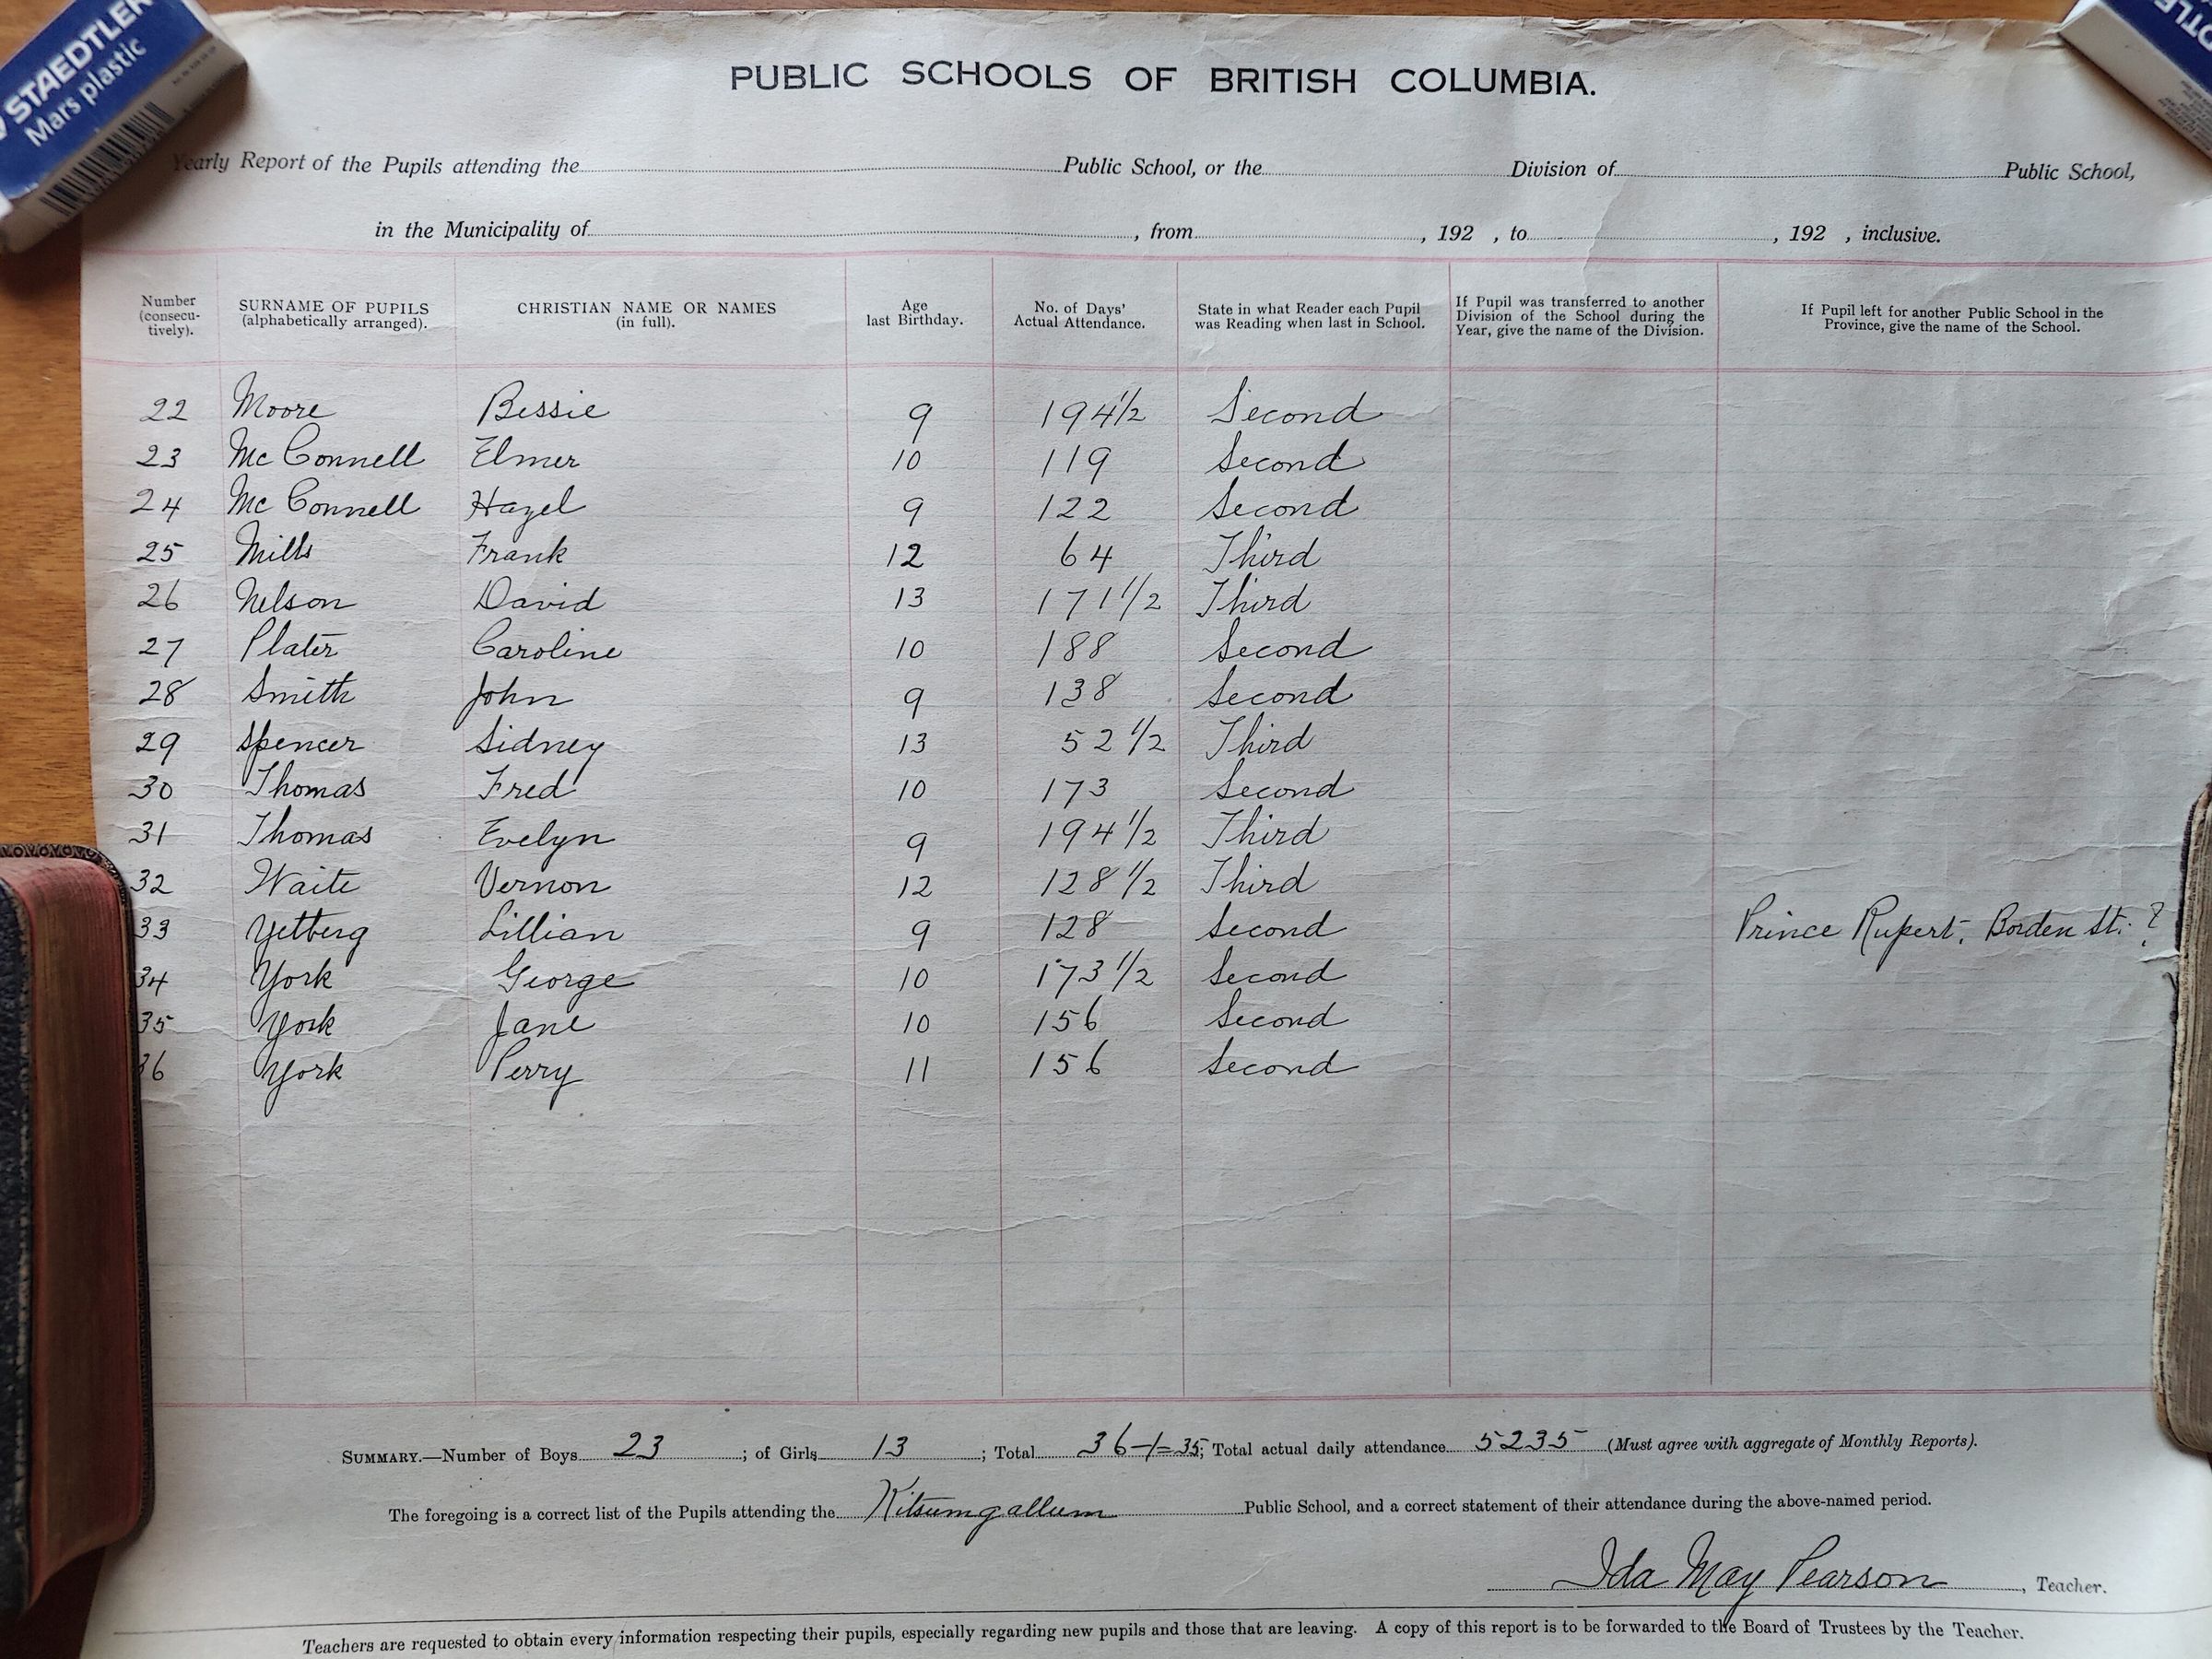 STAEDTLER
Mars plastic
PUBLIC SCHOOLS OF BRITISH COLUMBIA.
Yearly Report of the Pupils attending the Public School, or the Division of Public School,
in the Municipality of , from , 192 , to , 192 , inclusive.
Number (consecu-tively). SURNAME OF PUPILS (alphabetically arranged). CHRISTIAN NAME OR NAMES (in full). Age last Birthday. No. of Days' Actual Attendance. State in what Reader each Pupil was Reading when last in School. If Pupil was transferred to another Division of the School during the Year, give the name of the Division. If Pupil left for another Public School in the Province, give the name of the School.
22 Moore Bessie 9 194 1/2 Second
23 Mc Connell Elmer 10 119 Second
24 Mc Connell Hazel 9 122 Second
25 Mills Frank 12 64 Third
26 Nelson David 13 171 1/2 Third
27 Plater Caroline 10 188 Second
28 Smith John 9 138 Second
29 Spencer Sidney 13 52 1/2 Third
30 Thomas Fred 10 173 Second
31 Thomas Evelyn 9 194 1/2 Third
32 Waite Vernon 12 128 1/2 Third
33 Yetberg Lillian 9 128 Second Prince Rupert, Borden St. ?
34 York George 10 173 1/2 Second
35 York Jane 10 156 Second
36 York Perry 11 156 Second
SUMMARY.—Number of Boys 23 ; of Girls 13 ; Total 36-1=35; Total actual daily attendance 5235 (Must agree with aggregate of Monthly Reports).
The foregoing is a correct list of the Pupils attending the Kitsumgallum Public School, and a correct statement of their attendance during the above-named period.
Ida May Pearson, Teacher.
Teachers are requested to obtain every information respecting their pupils, especially regarding new pupils and those that are leaving. A copy of this report is to be forwarded to the Board of Trustees by the Teacher.